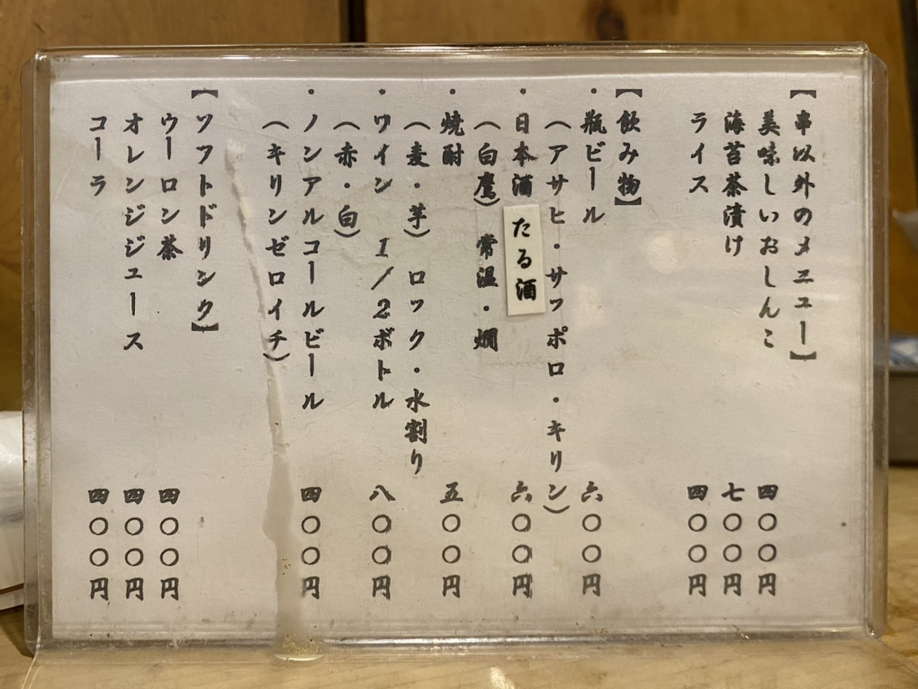 【串以外のメニュー】
美味しいおしんこ 四〇〇円
海苔茶漬け 七〇〇円
ライス 四〇〇円
【飲み物】
・瓶ビール 六〇〇円
（アサヒ・サッポロ・キリン）
・日本酒 たる酒 六〇〇円
（白鷹）常温・燗
・焼酎 五〇〇円
（麦・芋）ロック・水割り
・ワイン 1/2ボトル 八〇〇円
（赤・白）
・ノンアルコールビール 四〇〇円
（キリンゼロイチ）
【ソフトドリンク】
ウーロン茶 四〇〇円
オレンジジュース 四〇〇円
コーラ 四〇〇円